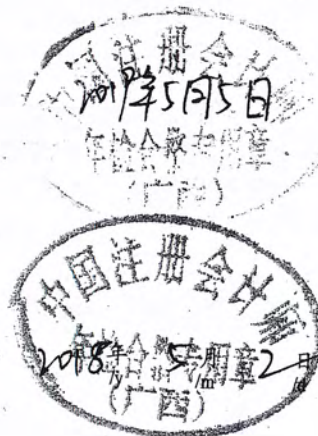 中国注册会计师
2017年5月5日
年检合格专用章
(广西)
中国注册会计师
年检合格专用章
2018年 5月 2日
/y /m /d
(广西)